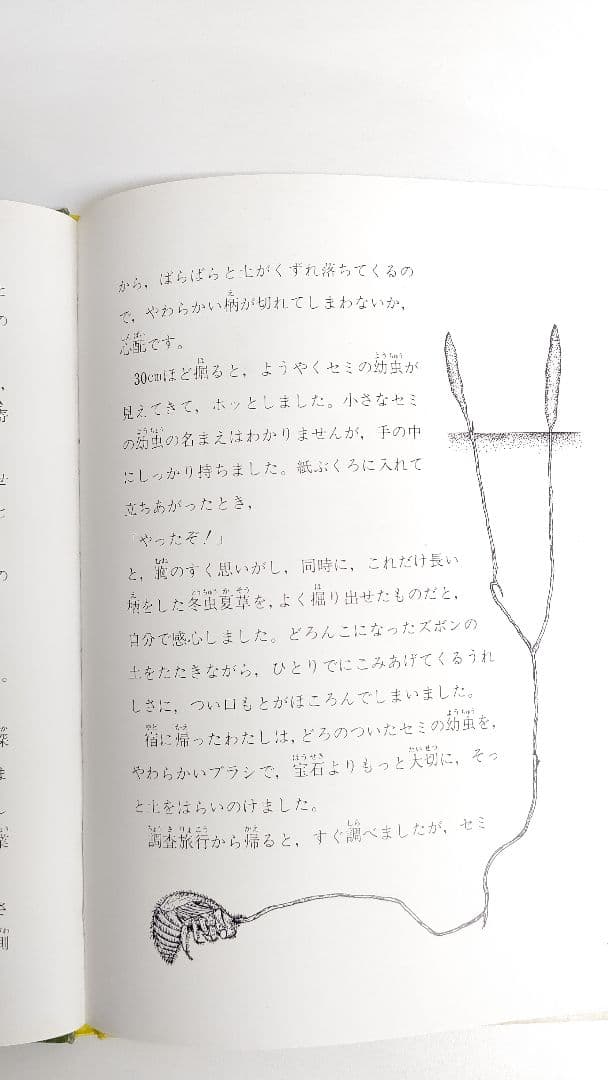 から，ばらばらと土がくずれ落ちてくるの
で，やわらかい柄が切れてしまわないか，
心配です。
30cmほど掘ると，ようやくセミの幼虫が
見えてきて，ホッとしました。小さなセミ
の幼虫の名まえはわかりませんが，手の中
にしっかり持ちました。紙ぶくろに入れて
立ちあがったとき，
「やったぞ！」
と，胸のすく思いがし，同時に，これだけ長い
柄をした冬虫夏草を，よく掘り出せたものだと，
自分で感心しました。どろんこになったズボンの
土をたたきながら，ひとりでにこみあげてくるうれ
しさに，つい口もとがほころんでしまいました。
宿に帰ったわたしは，どろのついたセミの幼虫を，
やわらかいブラシで，宝石よりもっと大切に，そっ
と土をはらいのけました。
調査旅行から帰ると，すぐ調べましたが，セミ